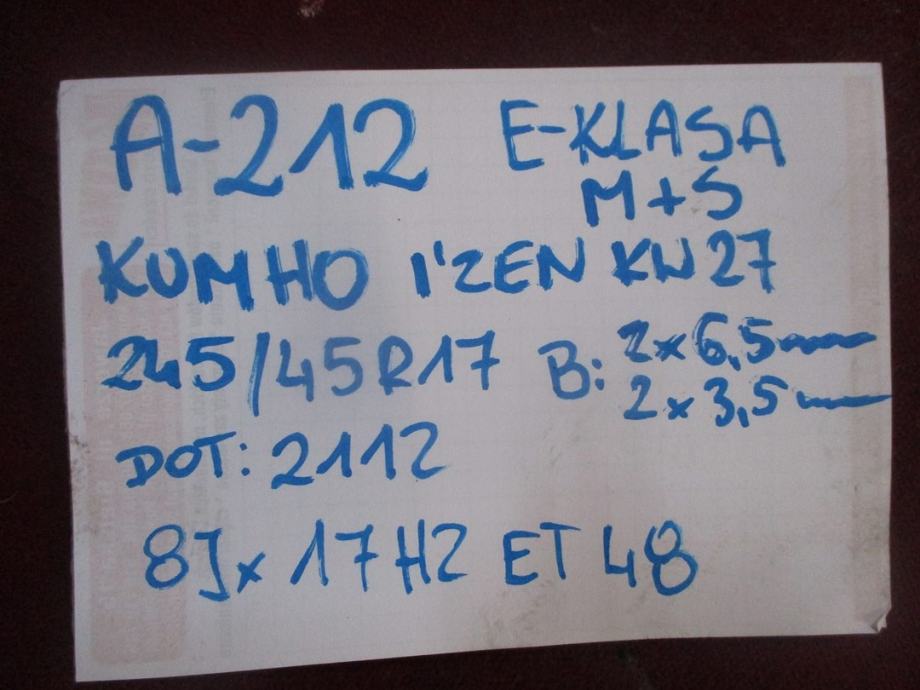 A-212 E-KLASA
M+S
KUMHO I'ZEN KW27
245/45R17 B: 2x6,5mm
2x3,5mm
DOT: 2112
8Jx17H2 ET 48